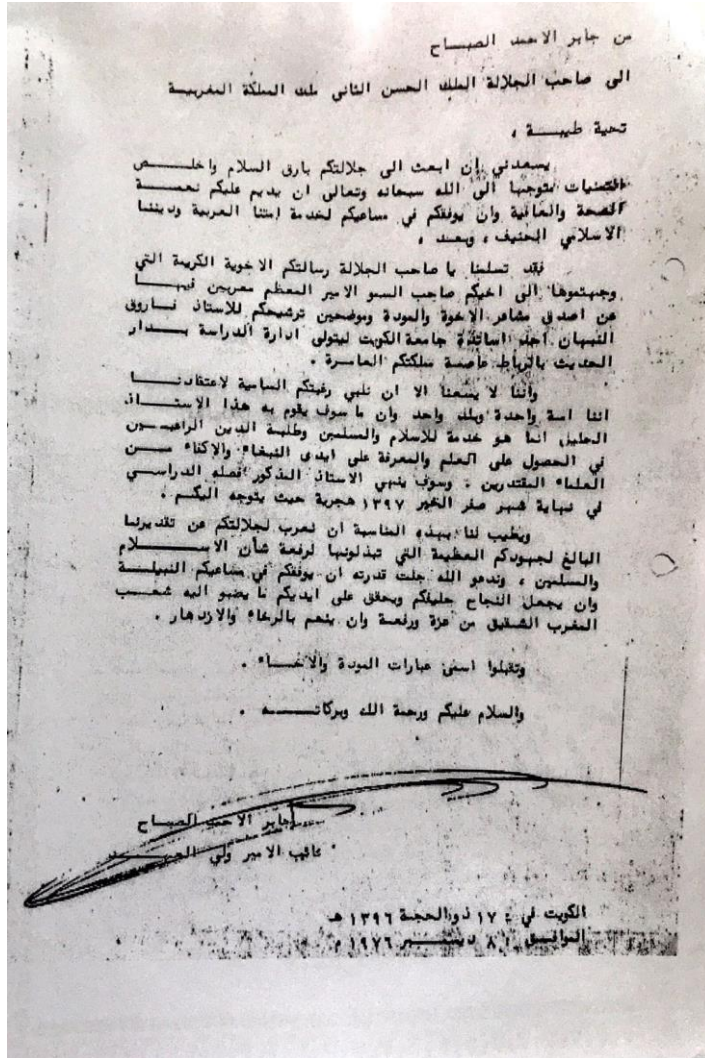 من جابر الاحمد الصبـاح
الى صاحب الجلالة الملك الحسن الثاني ملك المملكة المغربيـة
تحية طيبــة ،
يسعدني ان ابعث الى جلالتكم بارق السلام واخلــص
التمنيات متوجها الى الله سبحانه وتعالى ان يديم عليكم نعمــة
الصحة والعافية وان يوفقكم في مساعيكم لخدمة امتنا العربية وديننا
الاسلامي الحنيف ، وبعـد ،
فقد تسلمنا يا صاحب الجلالة رسالتكم الاخوية الكريمة التي
وجهتموها الى اخيكم صاحب السمو الامير المعظم معربين فيهـا
عن اصدق مشاعر الاخوة والمودة وموضحين ترشيحكم للاستاذ فـاروق
النبهان احد اساتذة جامعة الكويت ليتولى ادارة الدراسة بــدار
الحديث بالرباط عاصمة مملكتكم العامـرة .
واننا لا يسعنا الا ان نلبي رغبتكم السامية لاعتقادنــا
اننا امة واحدة وبلد واحد وان ما سوف يقوم به هذا الاستــاذ
الجليل انما هو خدمة للاسلام والمسلمين وطلبة الدين الراغبــين
في الحصول على العلم والمعرفة على ايدى النبغاء والاكفاء مــن
العلماء المقتدرين . وسوف ينهي الاستاذ المذكور فصله الدراســي
في نهاية شهر صفر الخير ١٣٩٧ هجرية حيث يتوجه اليكـم .
ويطيب لنا بهذه المناسبة ان نعرب لجلالتكم عن تقديرنـا
البالغ لجهودكم العظيمة التي تبذلونها لرفعة شأن الاســـلام
والمسلمين ، وندعو الله جلت قدرته ان يوفقكم في مساعيكم النبيلـة
وان يجعل النجاح حليفكم ويحقق على ايديكم ما يصبو اليه شعــب
المغرب الشقيق من عزة ورفعـة وان ينعم بالرخاء والازدهار .
وتقبلوا اسمى عبارات المودة والاخــاء .
والسلام عليكم ورحمة الله وبركاتــــه .
جابر الاحمد الصبـاح
نائب الامير ولي
الكويت في : ١٧ ذو الحجـة ١٣٩٦ هـ
الموافـق : ٨ ديسمبـر ١٩٧٦ م